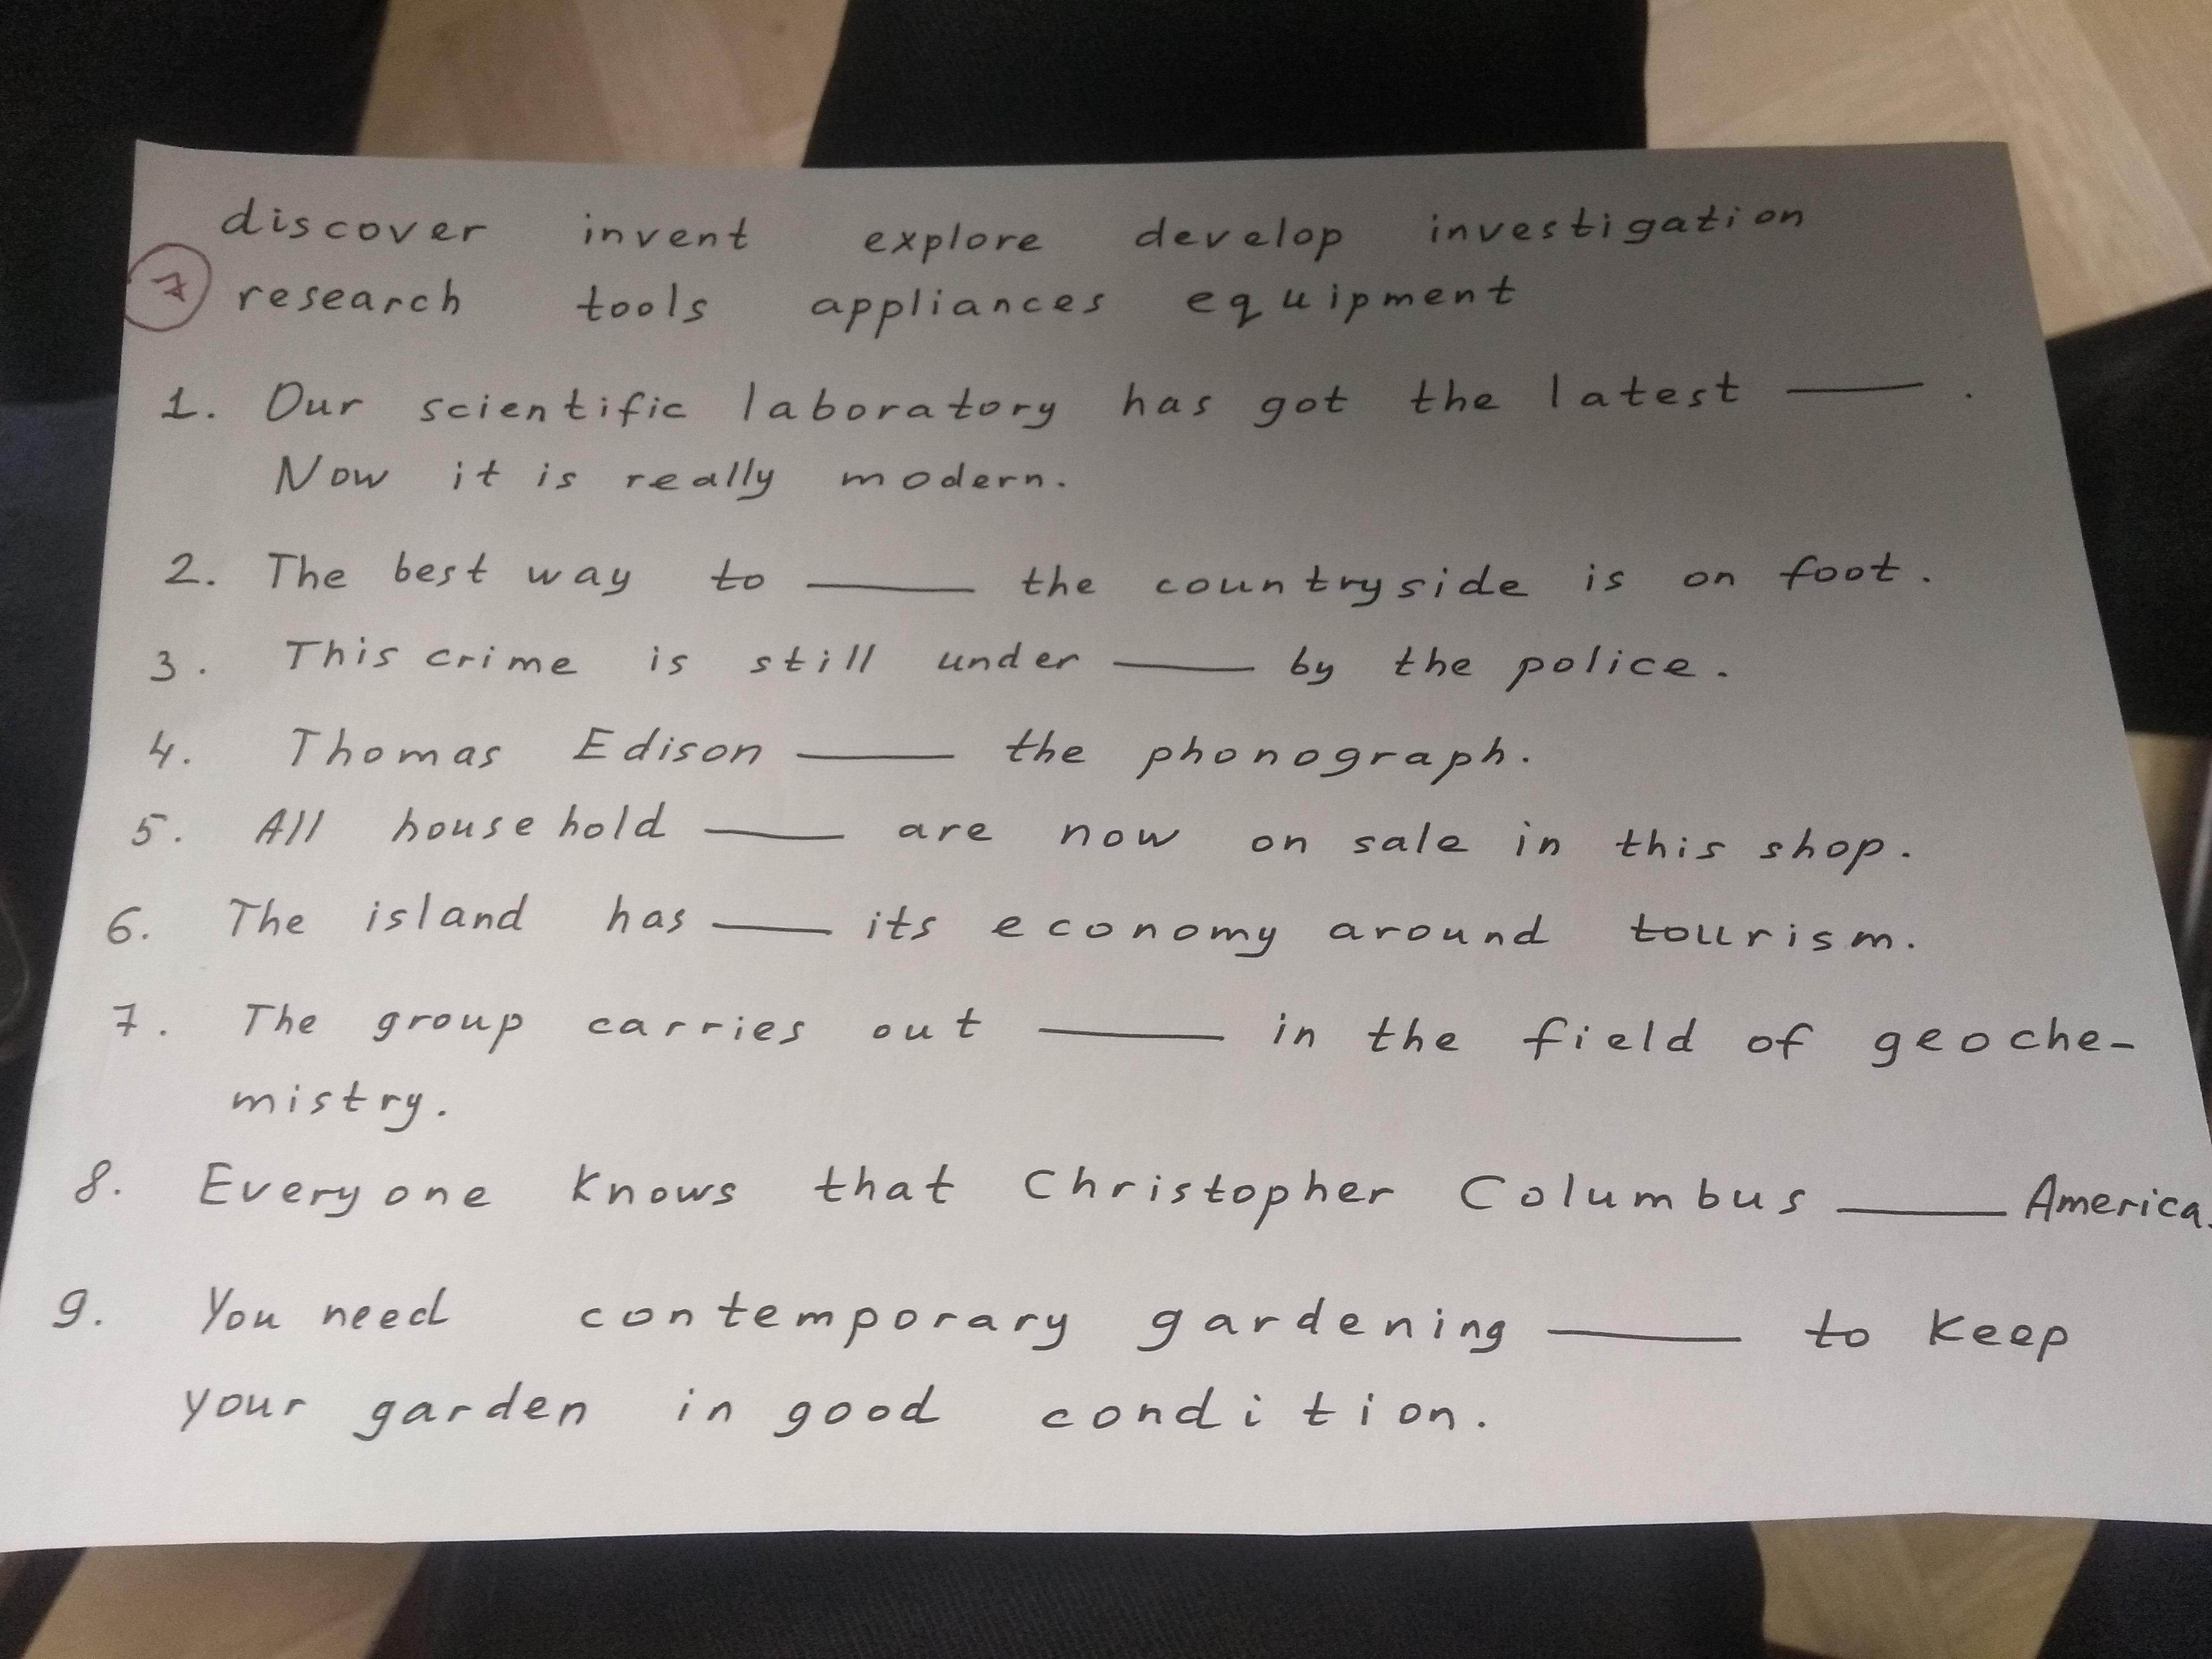 discover invent explore develop investigation
7 research tools appliances equipment
1. Our scientific laboratory has got the latest ____ .
Now it is really modern.
2. The best way to ____ the countryside is on foot.
3. This crime is still under ____ by the police.
4. Thomas Edison ____ the phonograph.
5. All household ____ are now on sale in this shop.
6. The island has ____ its economy around tourism.
7. The group carries out ____ in the field of geoche-
mistry.
8. Everyone knows that Christopher Columbus ____ America.
9. You need contemporary gardening ____ to keep
your garden in good condition.